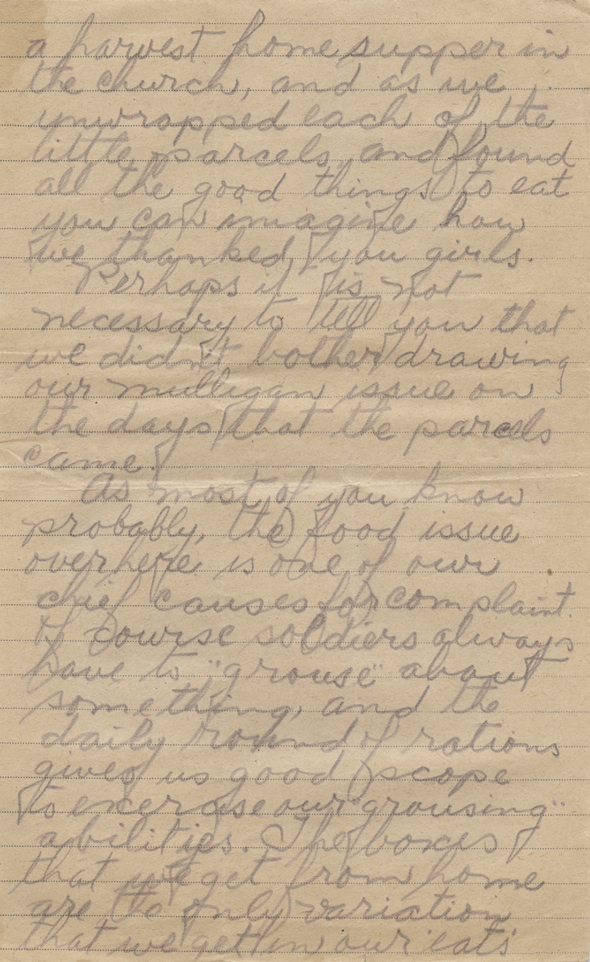 a harvest home supper in
the church, and as we
unwrapped each of the
little parcels, and found
all the good things to eat
you can imagine how
we thanked you girls.
Perhaps it is not
necessary to tell you that
we didn't bother drawing
our mulligan issue on
the days that the parcels
came.
As most of you know
probably, the food issue
over here is one of our
chief causes for complaint.
Of course soldiers always
have to "grouse" about
something, and the
daily round of rations
gives us good scope
to exercise our "grousing"
abilities. The boxes
that we get from home
are the only variation
that we get in our 'eats'